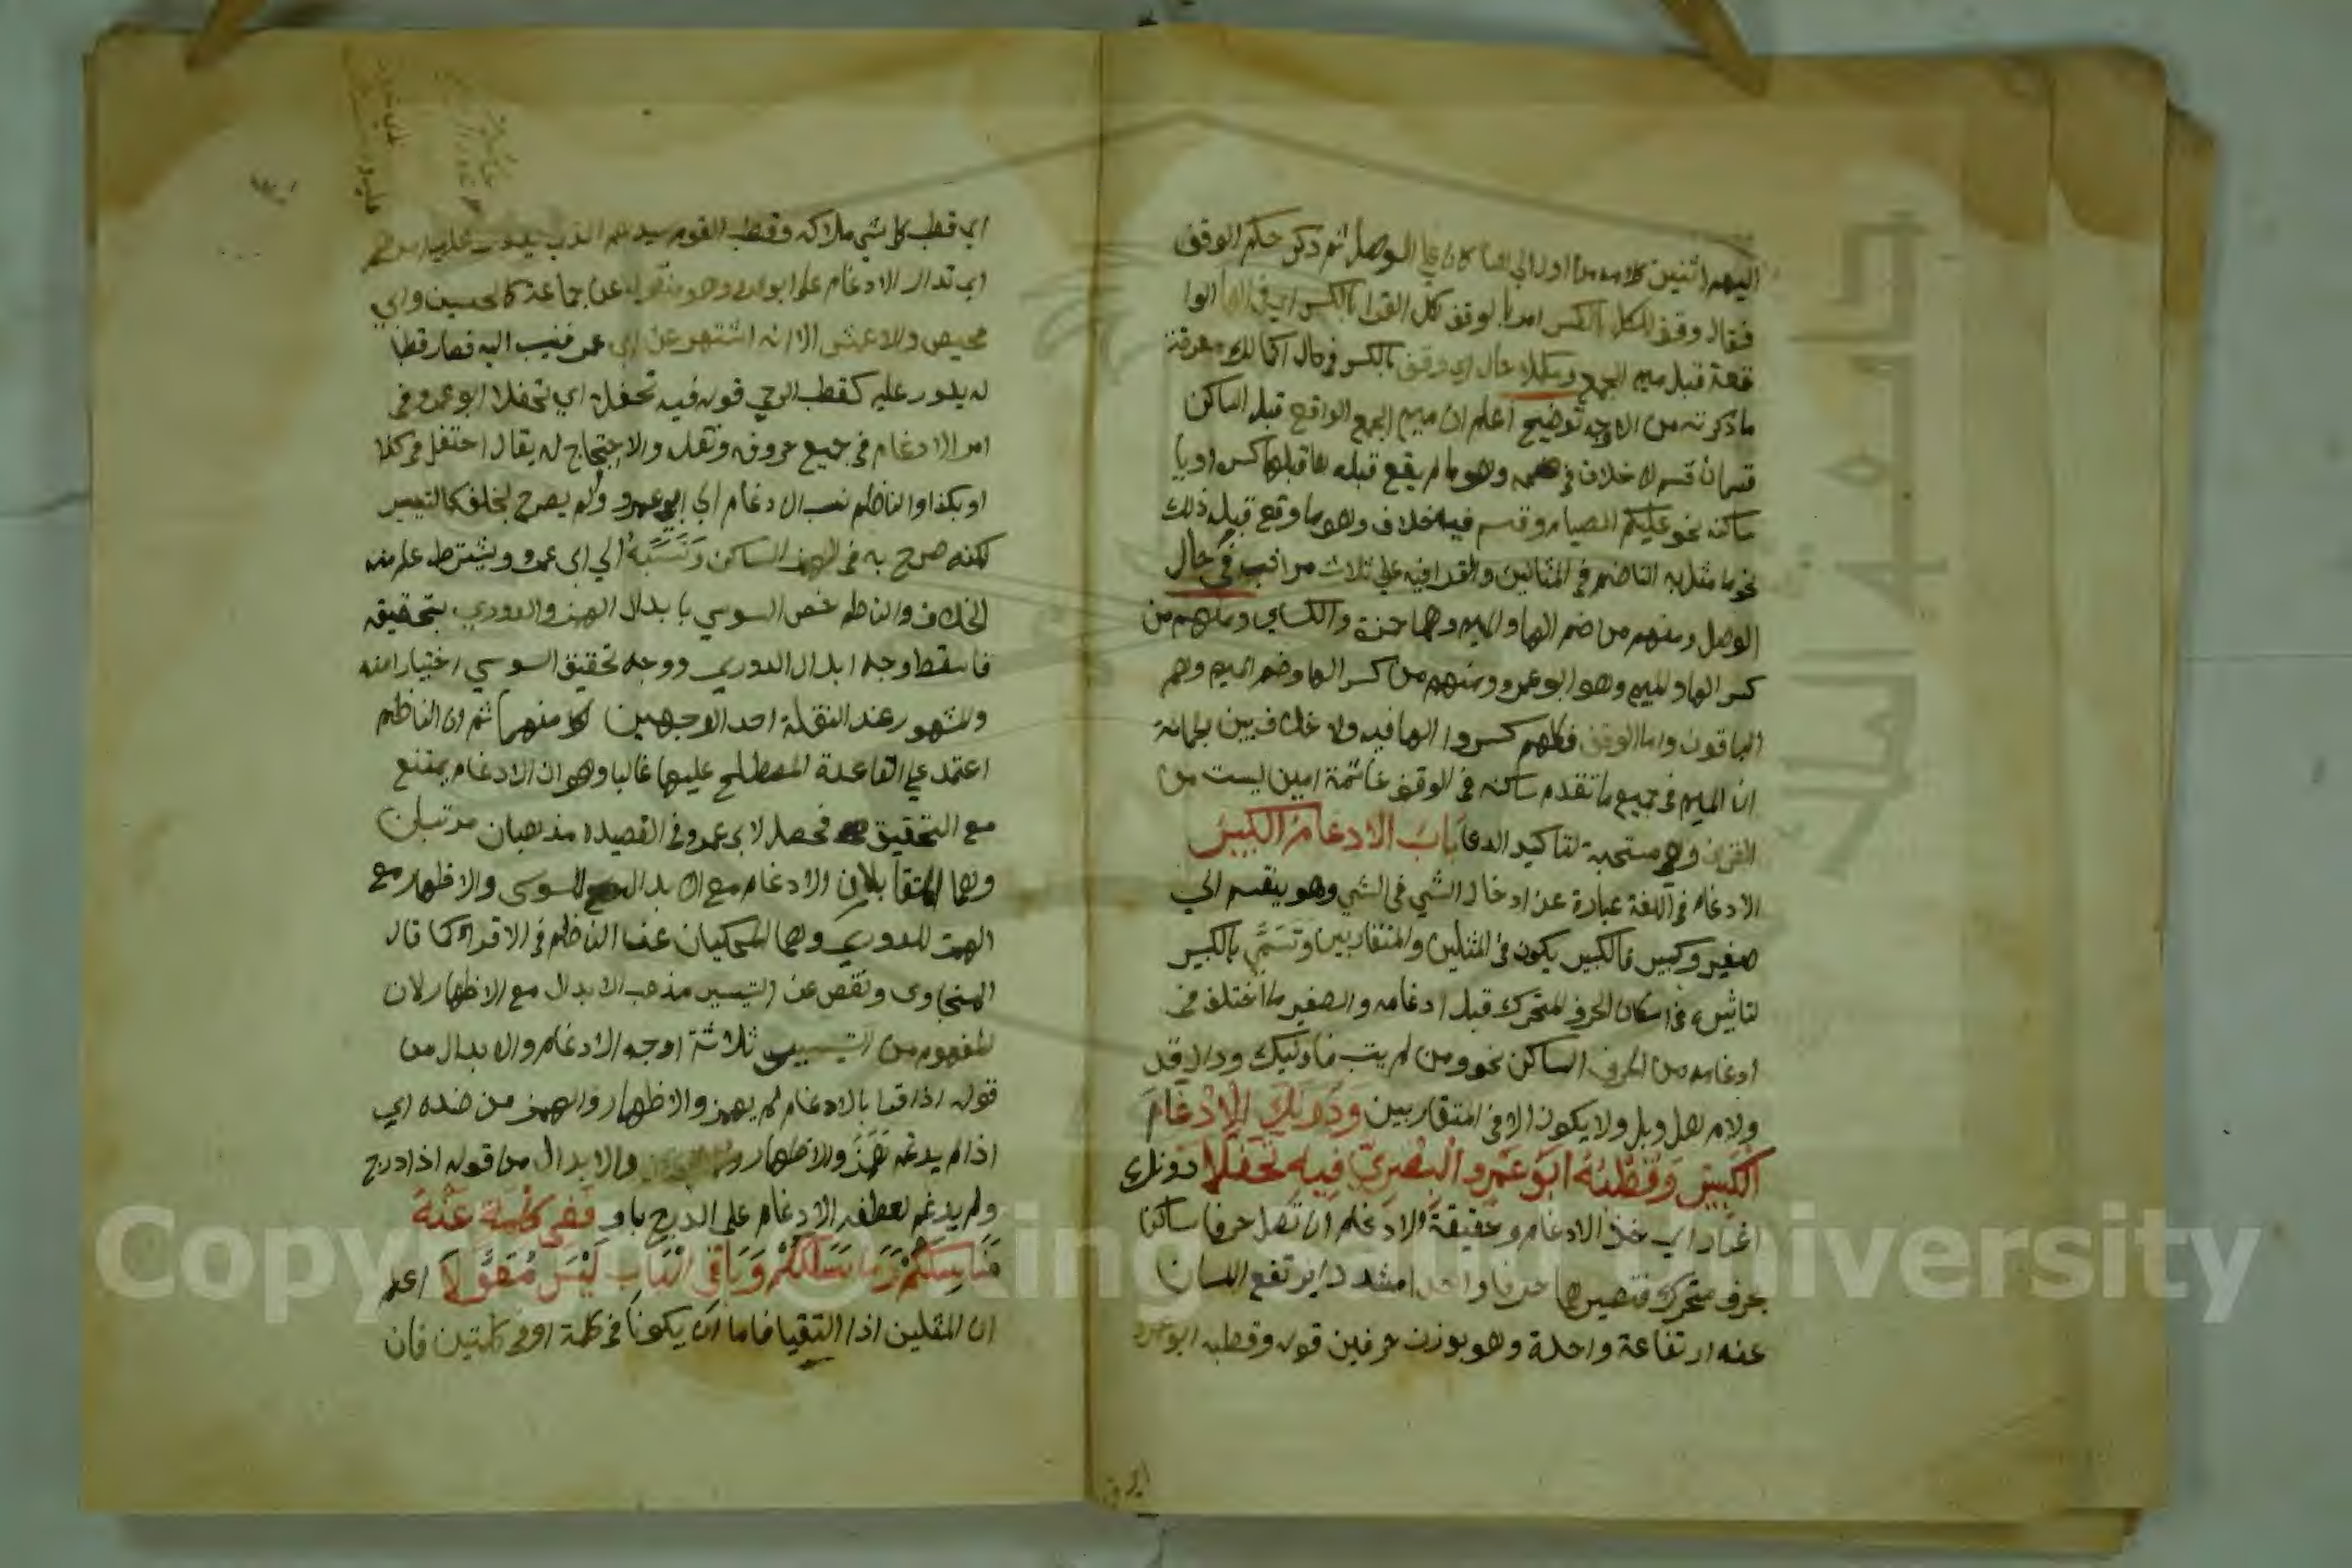 اليهم اثنين كلامه من اول الى هنا كان على الوصل ثم ذكر حكم الوقف
فقال وقف للكل بالكس امر بالوقف لكل القرا بالكس اي في الها الوا
قعة قبل ميم الجمع ومكملا حال اي وقف بالكس في حال اكمالك معرفة
ما ذكرته من الاوجه توضيح اعلم ان ميم الجمع الواقع قبل الساكن
قسمان قسم لا خلاف في ضمه وهو ما لم يقع قبله ها قبلها كس او يا
ساكنه نحو عليكم الصيام وقسم فيه خلاف وهو ما وقع قبله ذلك
نحو ما مثل به الناضم في المثالين والقرا فيه على ثلاث مراتب في حال
الوصل ومنهم من ضم الها والميم وهما حمزة والكساي ومنهم من
كسر الها والميم وهو ابو عمرو ومنهم من كسر الها وضم الميم وهم
الباقون واما الوقف فكلهم كسروا الها فيه ولا خلاف بين
ان الميم في جميع ما تقدم ساكنه في الوقف خاتمة امين ليست من
القران وهي مستحبة لتاكيد الدعا باب الادغام الكبير
الادغام في اللغة عبارة عن ادخال الشي في الشي وهو ينقسم الى
صغير وكبير فالكبير يكون في المثلين والمتقاربين وتسمى بالكبير
لتاثيره في اسكان الحرف المتحرك قبل ادغامه والصغير ما اختلف في
ادغامه من الحرف الساكن نحو ومن لم يتب فاوليك ودال قد
ولام هل وبل ولا يكون الا في المتقاربين ودونك الادغام
الكبير وقطبه ابو عمرو البصري فيه تحفلا دونك
اغرا اي خذ الادغام وحقيقة الادغام ان تصل حرفا ساكنا
بحرف متحرك فتصيرهما حرفا واحدا مشددا يرتفع اللسان
عنه ارتفاعة واحدة وهو بوزن حرفين قوله وقطبه ابو عمرو
اي قطب كل شي ملاكه وقطب القوم سيدهم الذي يدور عليه امرهم
اي تدار الادغام على ابو عمرو وهو منقول عن جماعة كالحسين وابي
محيصن والاعمش الا انه اشتهر عن ابي عمر فنسب اليه فصار قطبا
له يدور عليه كقطب الرحي قوله فيه تحفلا اي تحفلا ابو عمرو في
امر الادغام في جميع حروفه ونقله والاحتجاج له يقال احتفل في كذا
او بكذا والناظم نسب الادغام الى ابو عمرو ولم يصرح بخلف كالتيسير
لكنه صرح به في الهمز الساكن ونسبه الى ابى عمرو ويشترط علم منه
الخلاف والناظم خص السوسي بابدال الهمز والدوري بتحقيقه
فاسقط وجه ابدال الدوري ووجه تحقيق السوسي اختيارا منه
والمشهور عند النقلة احد الاوجهين كلا منهما ثم ان الناظم
اعتمد على القاعدة المصطلح عليها غالبا وهو ان الادغام يمتنع
مع التحقيق فحصل لابى عمرو في القصيدة مذهبان مرتبان
وهما المتقابلان الادغام مع الابدال للسوسى والاظهار مع
الهمز للدوري وهما المحكيان عند الناظم في الاقراء كما قال
السخاوى ونقص عن التيسير مذهب الابدال مع الاظهار لان
المفهوم من التيسير ثلاثة اوجه الادغام والابدال من
قوله اذا قرا بالادغام لم يهمز والاظهار والهمز من ضده اي
اذا لم يدغم همز والاظهار والابدال من قوله اذا ادرج
ولم يدغم لعطف الادغام على الدرج باو ففي كلمة عنه
مناسككم وما سلككم وباقى الباب ليس معولا اعلم
ان المثلين اذا التقيا فاما ان يكونا في كلمة او في كلمتين فان
Copyright © King Saud University